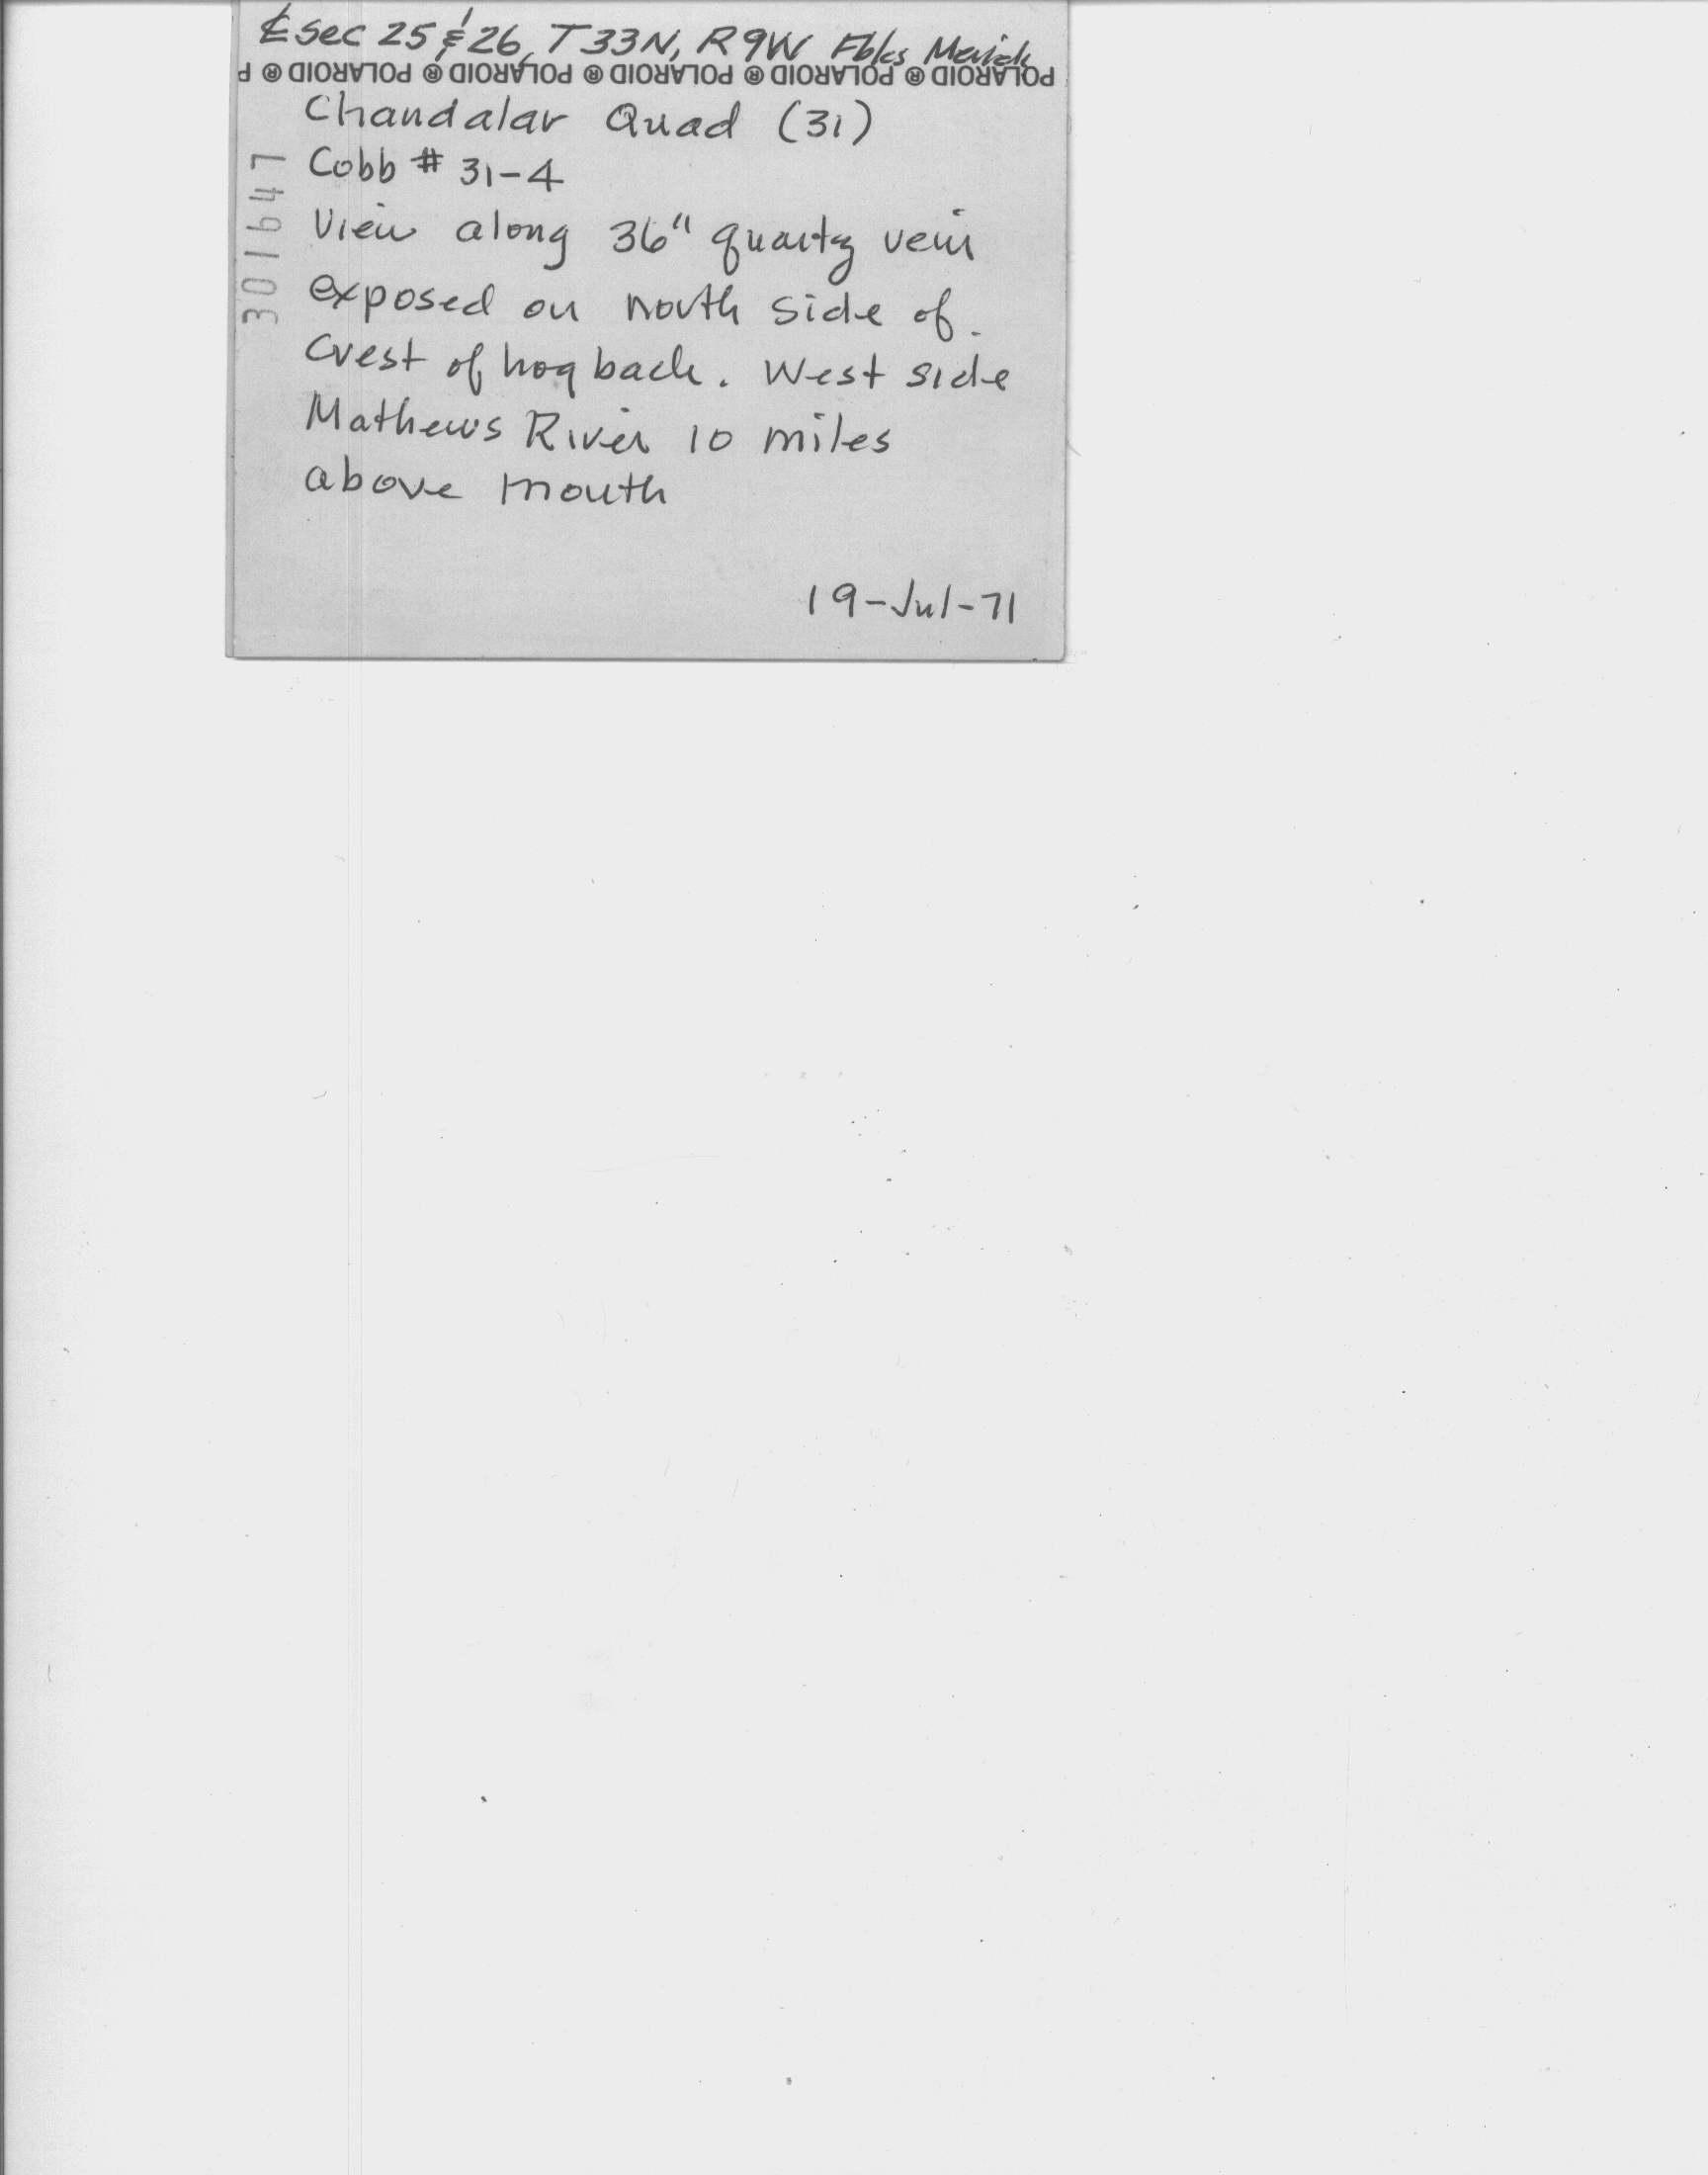 ℄ Sec 25 & 26, T33N, R9W Fbks Merid.
POLAROID ® POLAROID ® POLAROID ® POLAROID ® POLAROID ® P
Chandalar Quad (31)
Cobb # 31-4
View along 36" quartz vein
exposed on north side of
crest of hogback. West side
Mathews River 10 miles
above mouth
19-Jul-71
301647